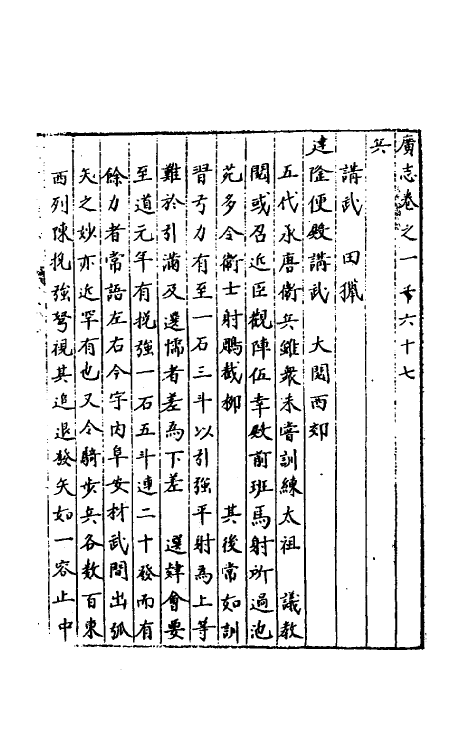 廣志卷之一百六十七
兵
講武　田獵
建隆便殿講武　大閱西郊
五代承唐衛兵雖衆未嘗訓練太祖　議教
閱或召近臣觀陣伍幸殿前班馬射所過池
苑多令衛士射鵰截柳　其後常如訓
習弓力有至一石三斗以引强平射為上等
難於引滿及選懦者差為下差　選　會要
至道元年有挽强一石五斗連二十發而有
餘力者常語左右今宇內阜安材武間出弧
矢之妙亦近罕有也又令騎步兵各數百東
西列陳挽強弩視其進退發矢如一容止中